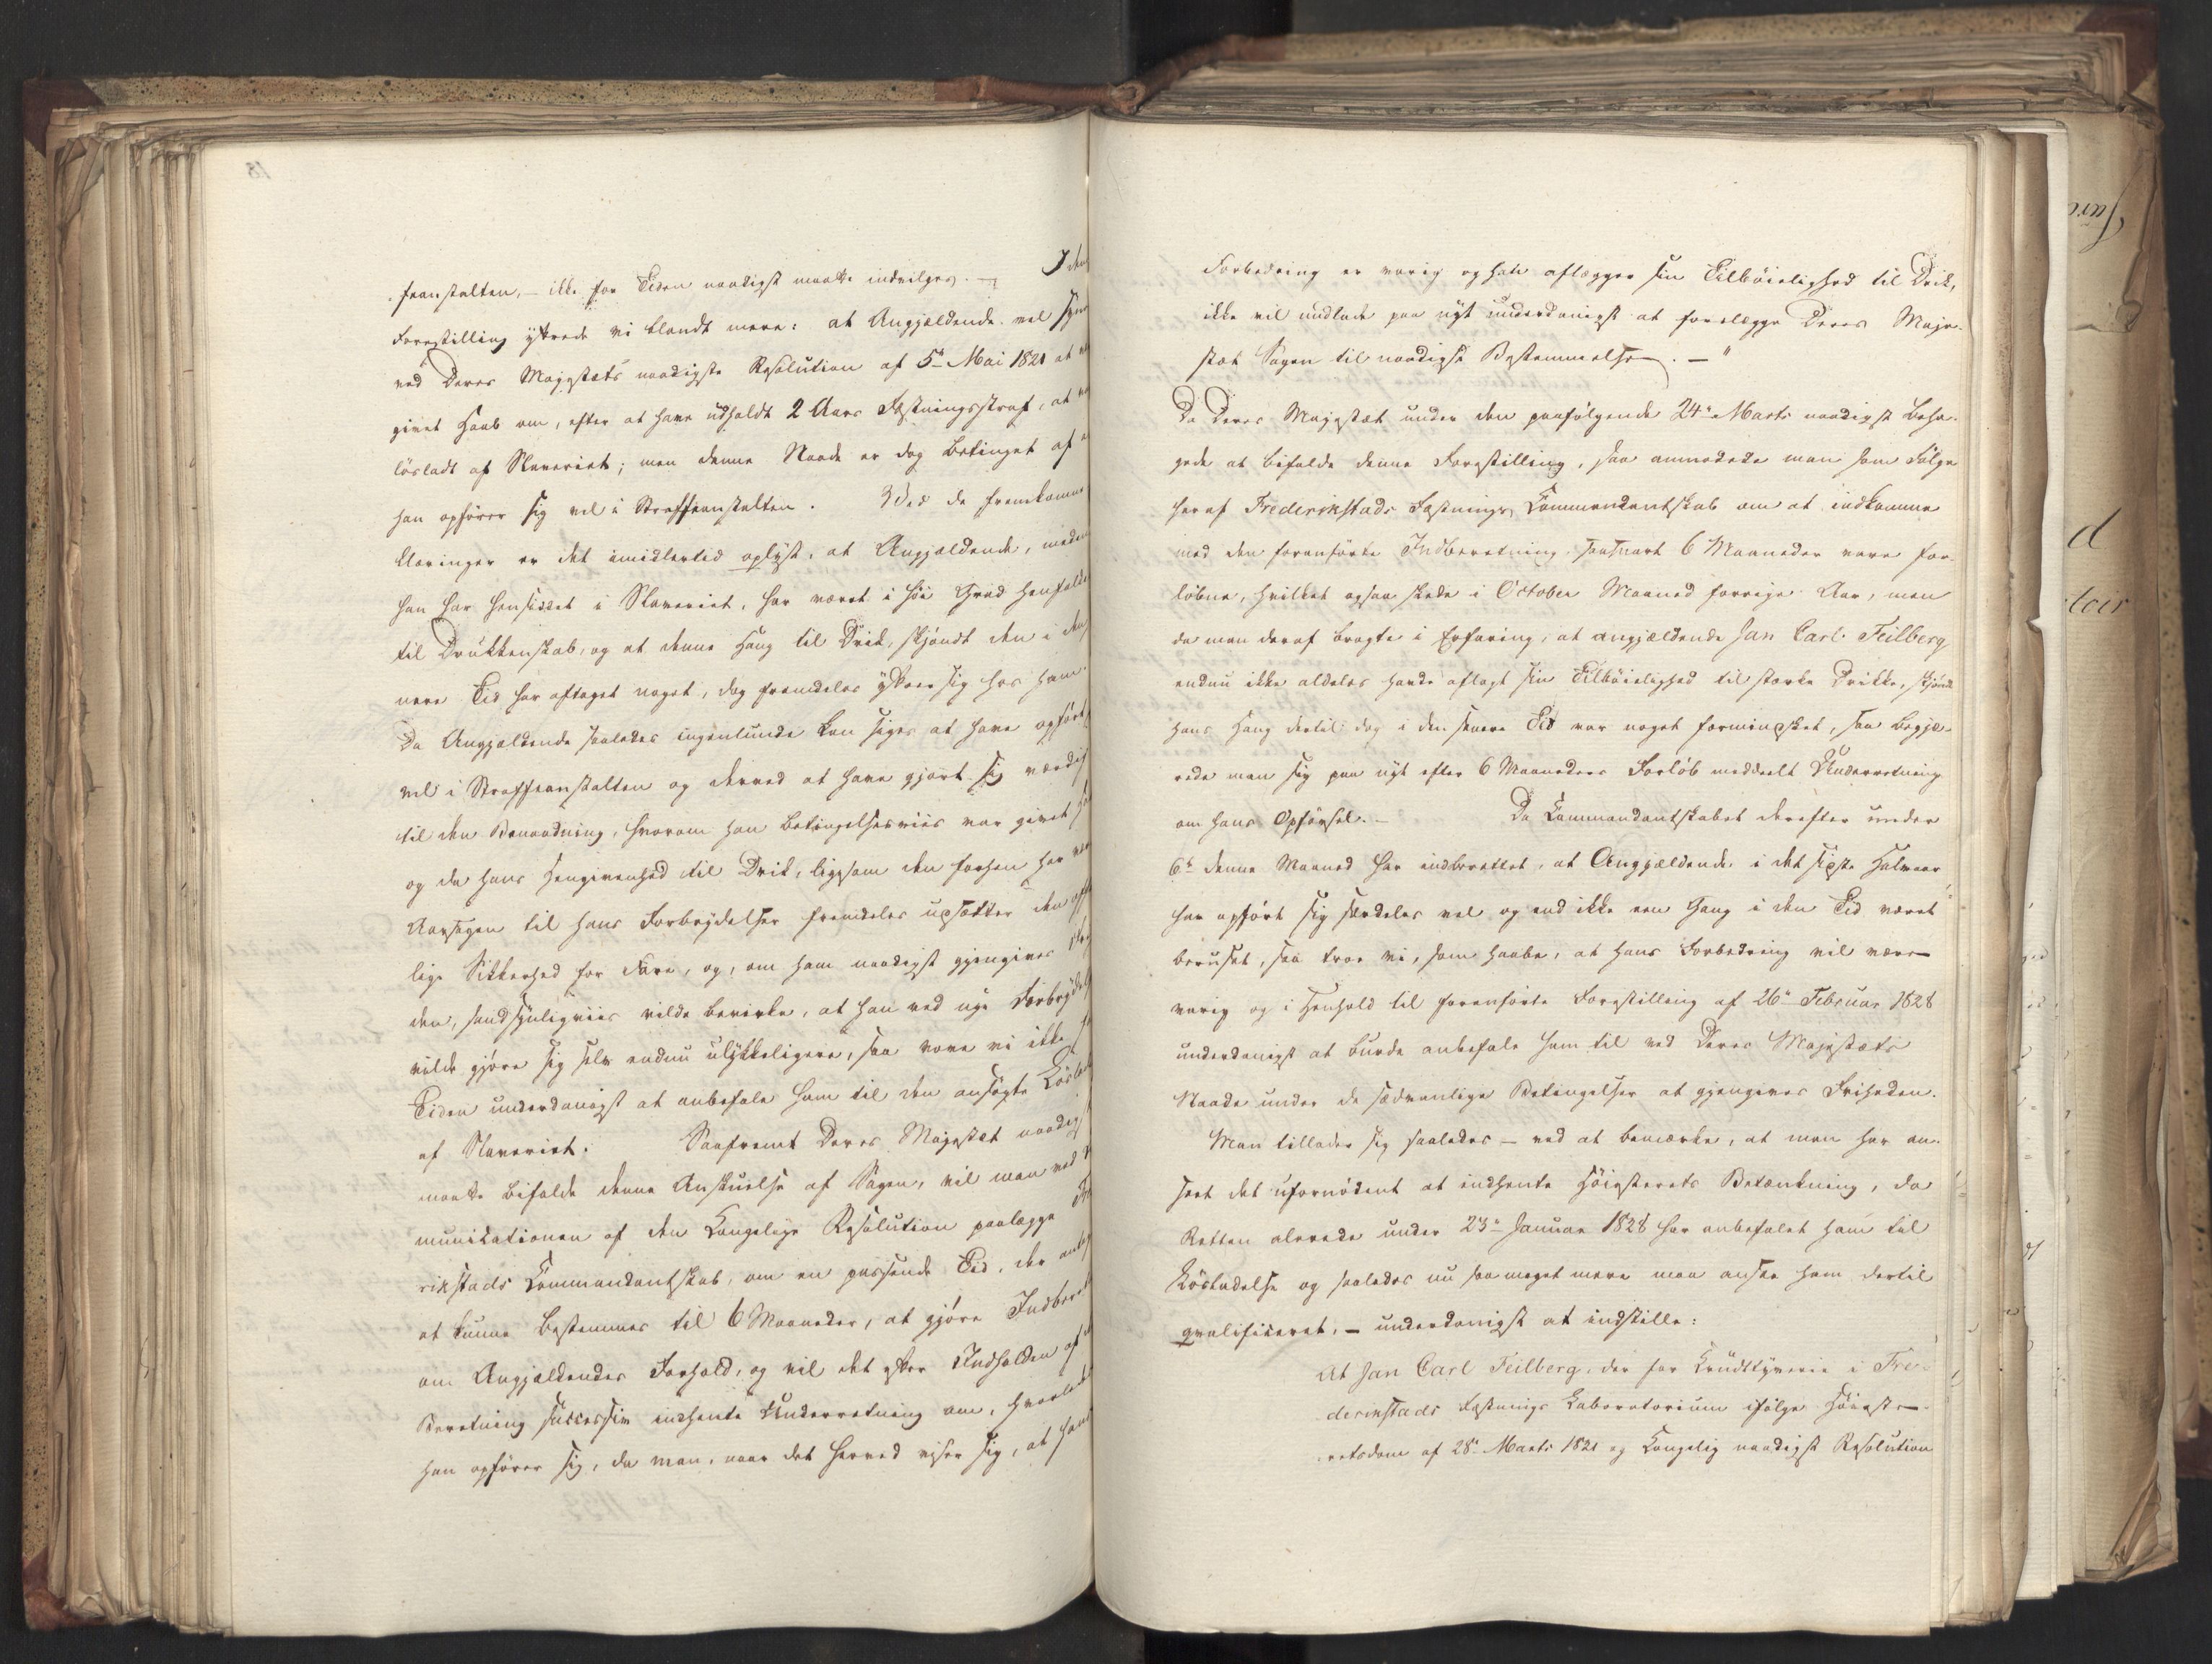 feanstalten, – ikke for Tiden naadigst maatte indvilges. – I den
Forestilling yttrede vi blandt mere: at Angjældende vel
ved Deres Majestæts naadigste Resolution af 5te Mai 1821 at
givet Haab om, efter at have udholdt 2 Aars Fæstningsstraf, at
løsladt af Slaveriet; men denne Naade er dog betinget af
han opfører sig vel i Straffeanstalten. Ved de fremkomne
klæringer er det imidlertid oplyst, at Angjældende, meden
han har hensiddet i Slaveriet, har været i høi Grad henfalden
til Drukkenskab, og at denne Hang til Drik, skjøndt den i den
nere Tid har aftaget noget, dog fremdeles yttrer sig hos ham.
Da Angjældende saaledes ingenlunde kan siges at have opført
vel i Straffeanstalten og derved at have gjort sig værdig
til den Benaadning, hvorom han betingelsesviis var givet
og da hans Hengivenhed til Drik, ligesom den forhen har
Aarsagen til hans Forbrydelser fremdeles udsætter den off
lige Sikkerhed for Fare, og, om ham naadigst gjengives
den, sandsynligviis vilde bevirke, at han ved nye Forbrydel
vilde gjøre sig selv endnu ulykkeligere, saa vove vi ikke
Tiden underdanigst at anbefale ham til den ansøgte Løslad
af Slaveriet. Saafremt Deres Majestæt naadigst
maatte bifalde denne Anskuelse af Sagen, vil man ved
munikationen af den Kongelige Resolution paalægge Fre
rikstads Kommandantskab, om en passende Tid, der
at kunne bestemmes til 6 Maaneder, at gjøre Indberet
om Angjældendes Forhold, og vil det efter Indholden af
Beretning successiv indhente Underretning om, hvorledes
han opfører sig, da man, naar det herved viser sig, at hans
Forbedring er varig og han aflægger sin Tilbøielighed til Drik,
ikke vil undlade paa nyt underdanigst at forelægge Deres Maje-
stæt Sagen til naadigst Bestemmelse. – "
Da Deres Majestæt under den paafølgende 24de Marts naadigst beha-
gede at bifalde denne Forestilling, saa anmodede man som Følge
heraf Frederikstads Fæstnings Kommandantskab om at indkomme
med den foranførte Indberetning saasnart 6 Maaneder vare for-
løbne, hvilket ogsaa skede i October Maaned forrige Aar, men
da man deraf bragte i Erfaring, at angjældende Jan Carl Feilberg
endnu ikke aldeles havde aflagt sin Tilbøielighed til stærke Drikke, skjøndt
hans Hang dertil dog i den senere Tid var noget formindsket, saa begjæ-
rede man sig paa nyt efter 6 Maaneders Forløb meddeelt Underretning
om hans Opførsel. – Da Kommandantskabet derefter under
6te denne Maaned har indberettet, at Angjældende i det sidste Halvaar
har opført sig særdeles vel og end ikke een Gang i den Tid været
beruset, saa troe vi, som haabe, at hans Forbedring vil være
varig og i Henhold til foranførte Forestilling af 26de Februar 1828
underdanigst at burde anbefale ham til ved Deres Majestæts
Naade under de sædvanlige Betingelser at gjengives Friheden.
Man tillader sig saaledes – ved at bemærke, at man har an-
seet det ufornødent at indhente Høiesterets Betænkning, da
Retten allerede under 23de Januar 1828 har anbefalet ham til
Løsladelse og saaledes nu saa meget mere maa ansee ham dertil
qvalificeret, – underdanigst at indstille:
At Jan Carl Feilberg, der for Krudttyverie i Fre-
derikstads Fæstnings Laboratorium ifølge Høieste-
retsdom af 28de Marts 1821 og Kongelig naadigst Resolution